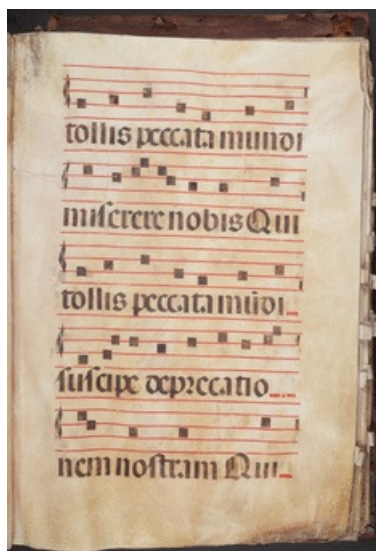 tollis peccata mundi
miserere nobis Qui
tollis peccata mūdi
suscipe deprecatio
nem nostram Qui